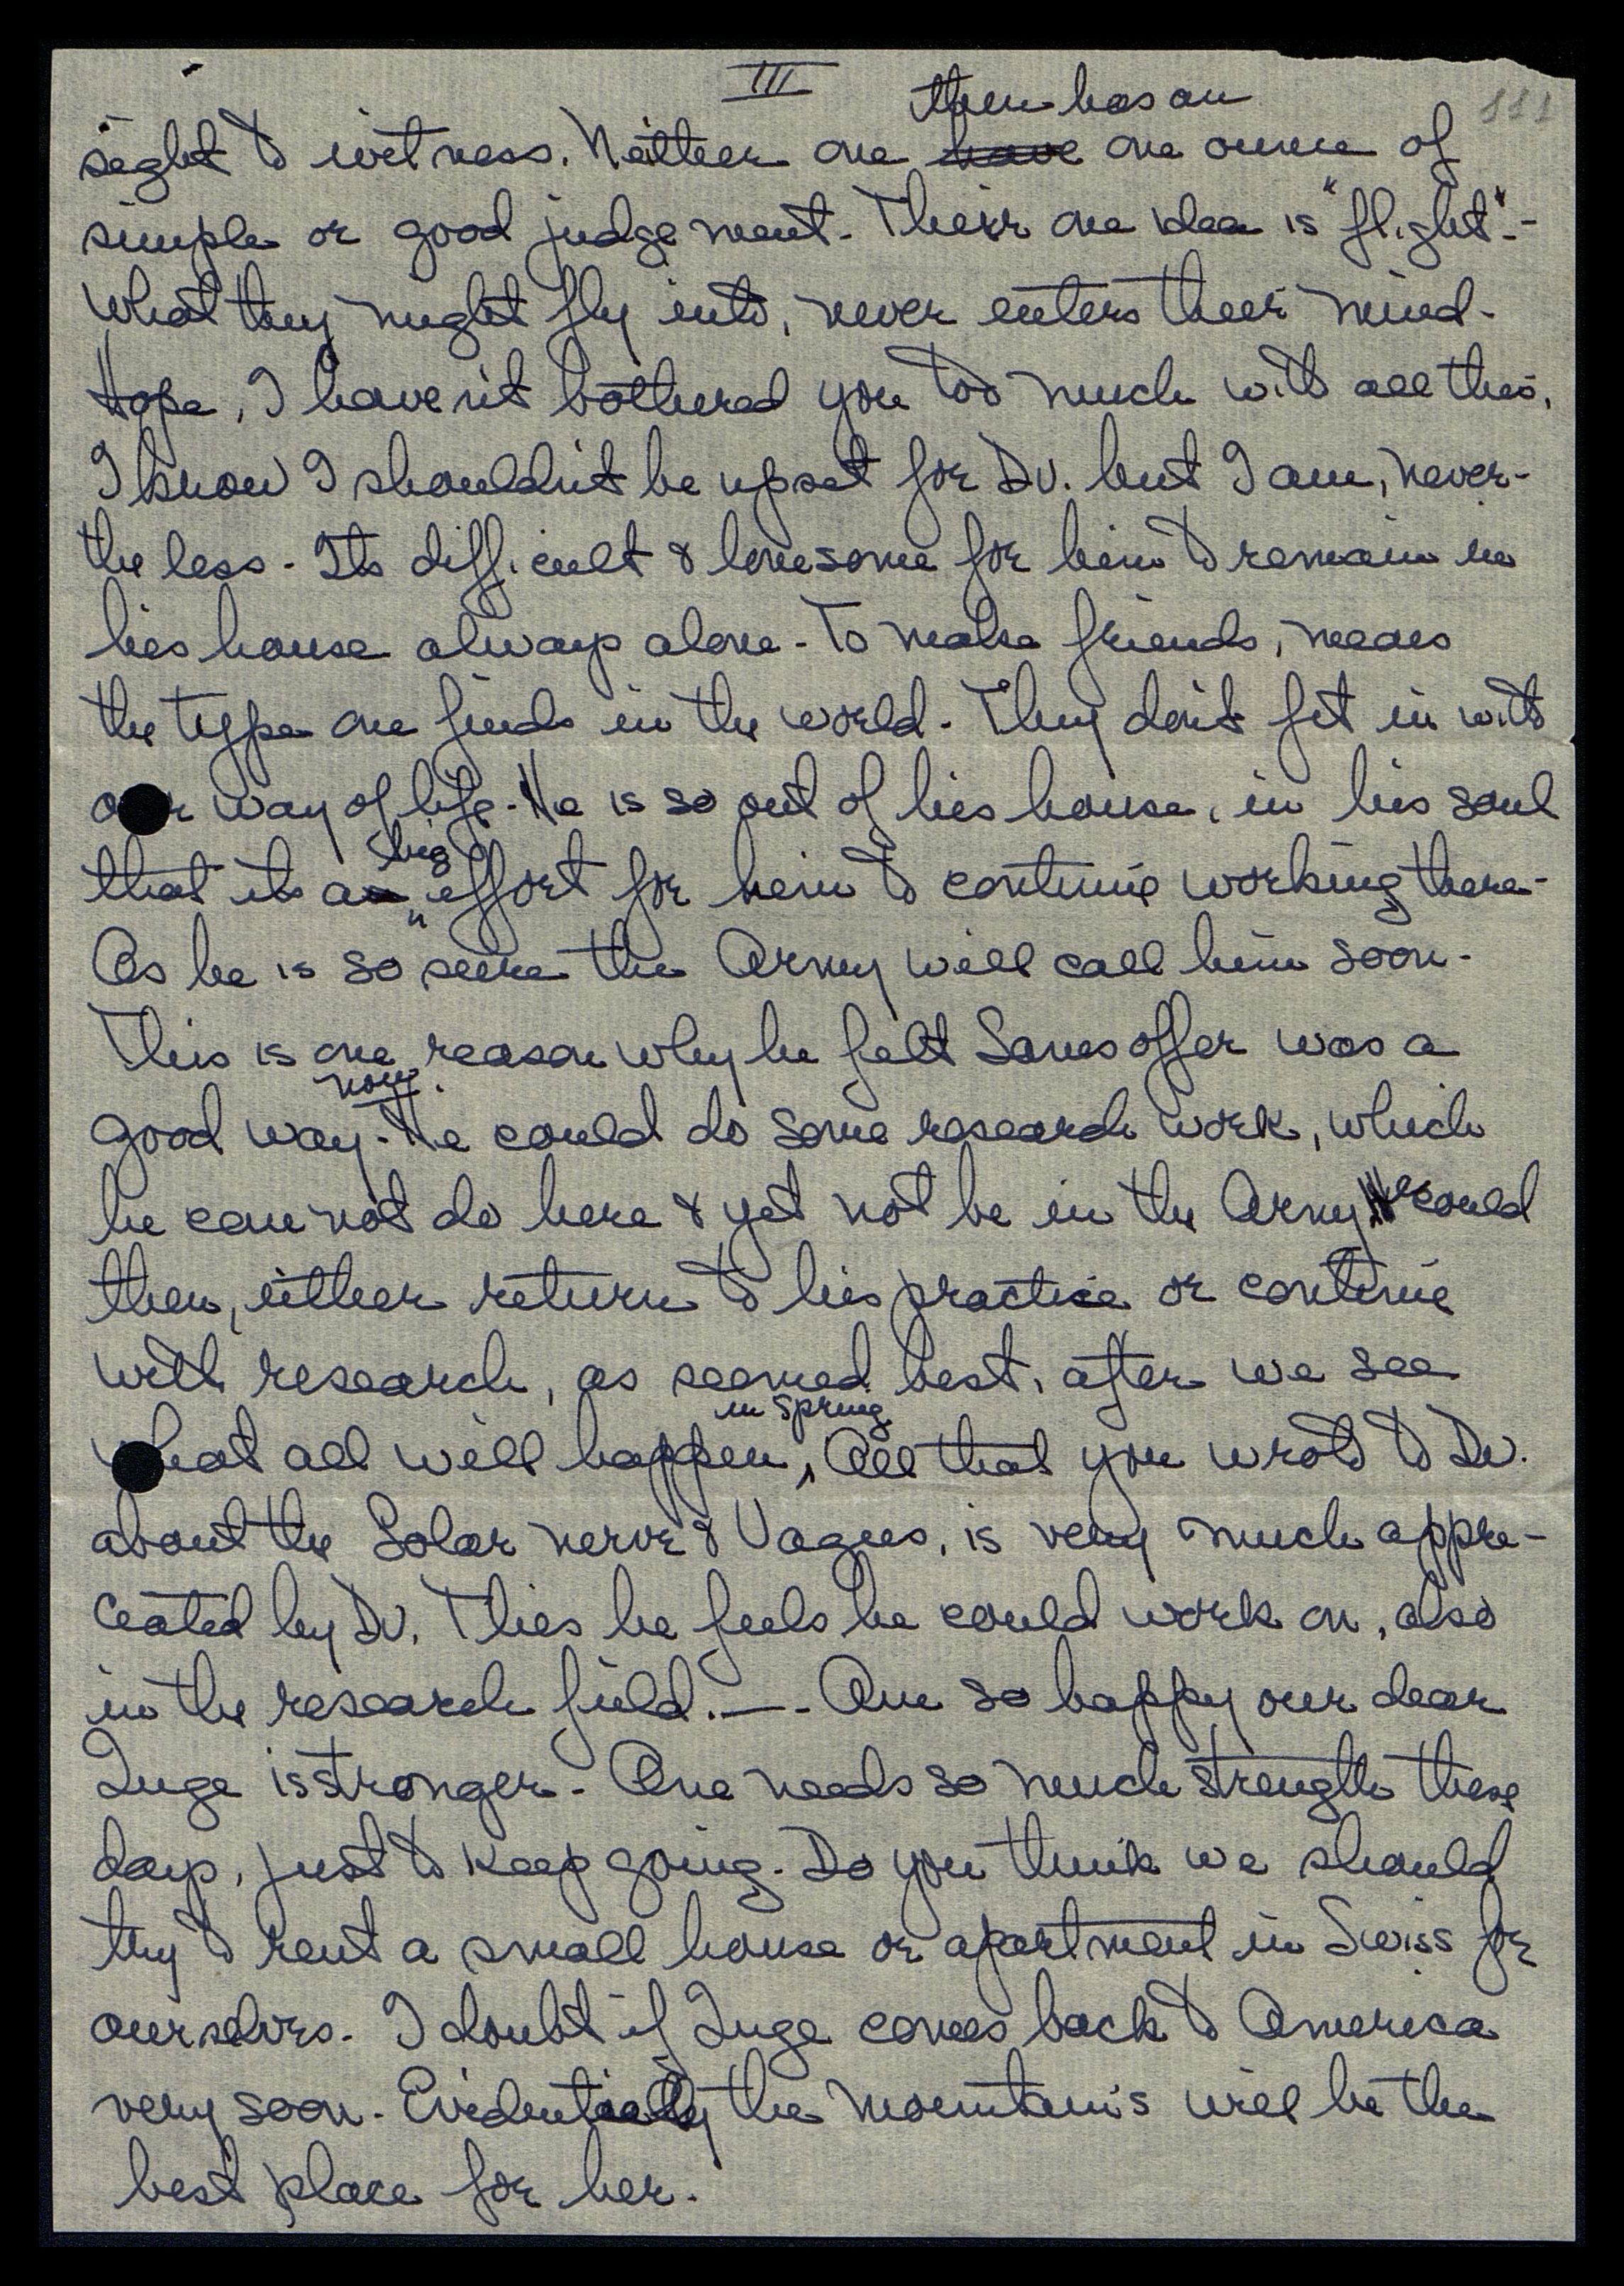 III
111
them has an
sight to witness. Neither one have one ounce of
simple or good judgement. Their one idea is "flight".-
What they might fly into, never enters their mind.
Hope, I haven't bothered you too much with all this.
I know I shouldn't be upset for Dv. but I am, never-
the less. Its difficult & lonesome for him to remain in
his house always alone. To make friends, means
the type one finds in the world. They don't fit in with
our way of life. He is so out of his house, in his soul
big
that its an effort for him to continue working there.
As he is so sure the Army will call him soon.
This is one reason why he felt Sanes offer was a
now
good way. He could do some research work, which
he can not do here & yet not be in the Army. He could
then, either return to his practice or continue
with research, as seemed best, after we see
in Spring
what all will happen, All that you wrote to Dv.
about the Solar nerve & Vagus, is very much appre-
ciated by Dv. This he feels he could work on, also
in the research field. — . Am so happy our dear
Inge is stronger. One needs so much strength these
days, just to keep going. Do you think we should
try to rent a small house or apartment in Swiss for
ourselves. I doubt if Inge comes back to America
very soon. Evidently the mountains will be the
best place for her.